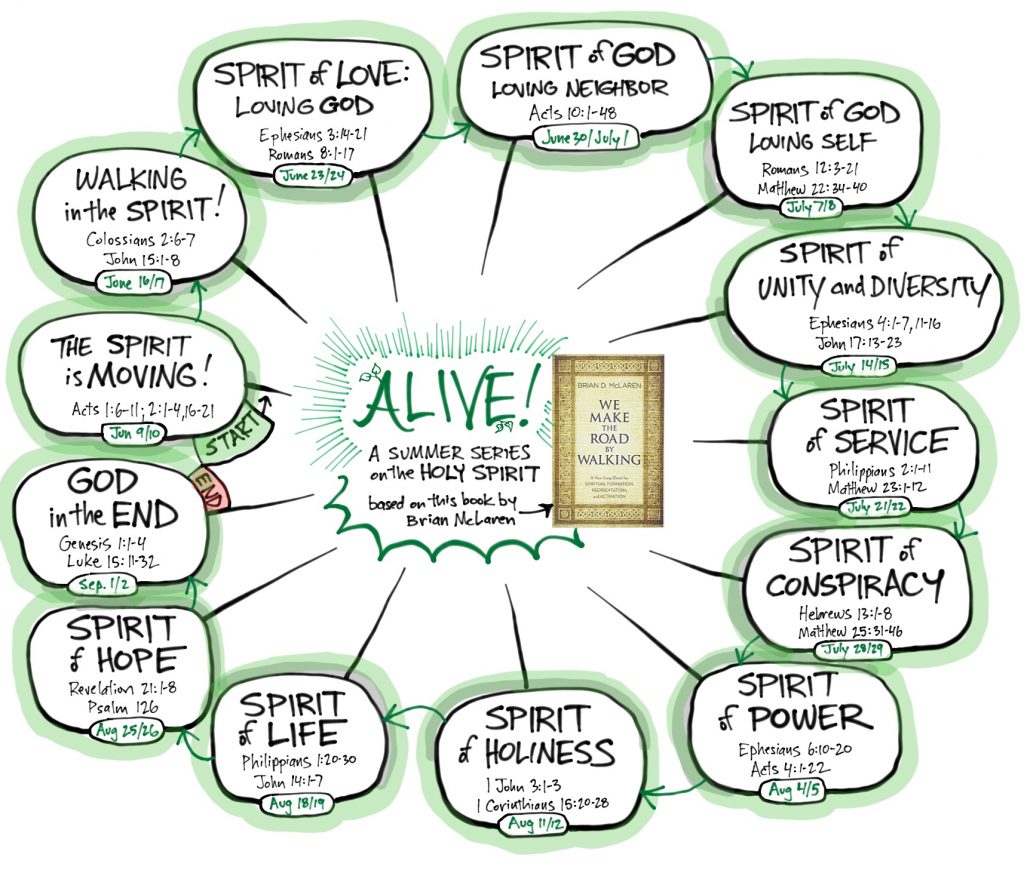 ALIVE!
A SUMMER SERIES
on the HOLY SPIRIT
based on this book by
Brian McLaren
BRIAN D. McLAREN
WE
MAKE
THE
ROAD
BY
WALKING
A Year-Long Quest for
SPIRITUAL FORMATION,
REORIENTATION,
AND ACTIVATION
START
THE SPIRIT
is MOVING!
Acts 1:6-11; 2:1-4, 16-21
Jun 9/10
WALKING
in the SPIRIT!
Colossians 2:6-7
John 15:1-8
June 16/17
SPIRIT of LOVE:
LOVING GOD
Ephesians 3:14-21
Romans 8:1-17
June 23/24
SPIRIT of GOD
LOVING NEIGHBOR
Acts 10:1-48
June 30/July 1
SPIRIT of GOD
LOVING SELF
Romans 12:3-21
Matthew 22:34-40
July 7/8
SPIRIT of
UNITY and DIVERSITY
Ephesians 4:1-7, 11-16
John 17:13-23
July 14/15
SPIRIT
of SERVICE
Philippians 2:1-11
Matthew 23:1-12
July 21/22
SPIRIT of
CONSPIRACY
Hebrews 13:1-8
Matthew 25:31-46
July 28/29
SPIRIT
of POWER
Ephesians 6:10-20
Acts 4:1-22
Aug 4/5
SPIRIT
of HOLINESS
1 John 3:1-3
1 Corinthians 15:20-28
Aug 11/12
SPIRIT
of LIFE
Philippians 1:20-30
John 14:1-7
Aug 18/19
SPIRIT
of HOPE
Revelation 21:1-8
Psalm 126
Aug 25/26
GOD
in the END
Genesis 1:1-4
Luke 15:11-32
Sep. 1/2
END